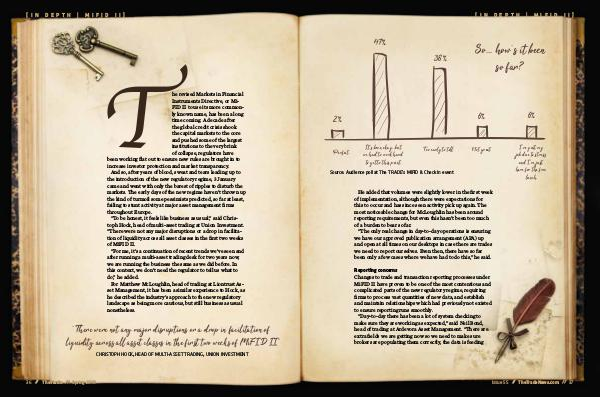 [IN DEPTH | MiFID II]
The revised Markets in Financial
Instruments Directive, or Mi-
FID II to use its more common-
ly known name, has been a long
time coming. A decade after
the global credit crisis shook
the capital markets to the core
and pushed some of the largest
institutions to the very brink
of collapse, regulators have
been working flat out to ensure new rules are brought in to
increase investor protection and market transparency.
And so, after years of blood, sweat and tears leading up to
the introduction of the new regulatory regime, 3 January
came and went with only the barest of ripples to disturb the
markets. The early days of the new regime haven't thrown up
the kind of turmoil some pessimists predicted, so far at least,
failing to stunt activity at major asset management firms
throughout Europe.
"To be honest, it feels like business as usual," said Chris-
toph Hock, head of multi-asset trading at Union Investment.
"There were not any major disruptions or a drop in facilita-
tion of liquidity across all asset classes in the first two weeks
of MiFID II.
"For me, it's a continuation of recent trends we've seen and
after running a multi-asset trading desk for two years now,
we are running the business the same as we did before. In
this context, we don't need the regulator to tell us what to
do," he added.
For Matthew McLoughlin, head of trading at Liontrust As-
set Management, it has been a similar experience to Hock, as
he described the industry's approach to the new regulatory
landscape as being more cautious, but still business as usual
nonetheless.
"There were not any major disruptions or a drop in facilitation of
liquidity across all asset classes in the first two weeks of MiFID II
CHRISTOPH HOCK, HEAD OF MULTI-ASSET TRADING, UNION INVESTMENT
[IN DEPTH | MiFID II]
So... how's it been
so far?
2%
47%
36%
Too early to tell
Source: Audience poll at The TRADE's MiFID II Check in event
He added that volumes were slightly lower in the first week
of implementation, although there were expectations for
this to occur and has since seen activity pick up again. The
most noticeable change for McLoughlin has been around
reporting requirements, but even this hasn't been too much
of a burden to bear so far.
"The only real change in day-to-day operations is ensuring
we have our approved publication arrangement (APA) up
and open at all times on our desktops in case there are trades
we need to report ourselves. Even then, there have so far
been only a few cases where we have had to do this," he said.
Reporting concerns
Changes to trade and transaction reporting processes under
MiFID II have proven to be one of the most contentious and
complicated parts of the new regulatory regime, requiring
firms to process vast quantities of new data, and establish
and maintain relationships which had previously not existed
to ensure reporting runs smoothly.
"Day-to-day there has been a lot of system checking to
make sure they are working as expected," said Neil Bond,
head of trading at Ardevora Asset Management. "There are
extra fields we are getting now so we need to make sure
brokers are populating them correctly, the data is feeding
Issue 55 // TheTradeNews.com // 37